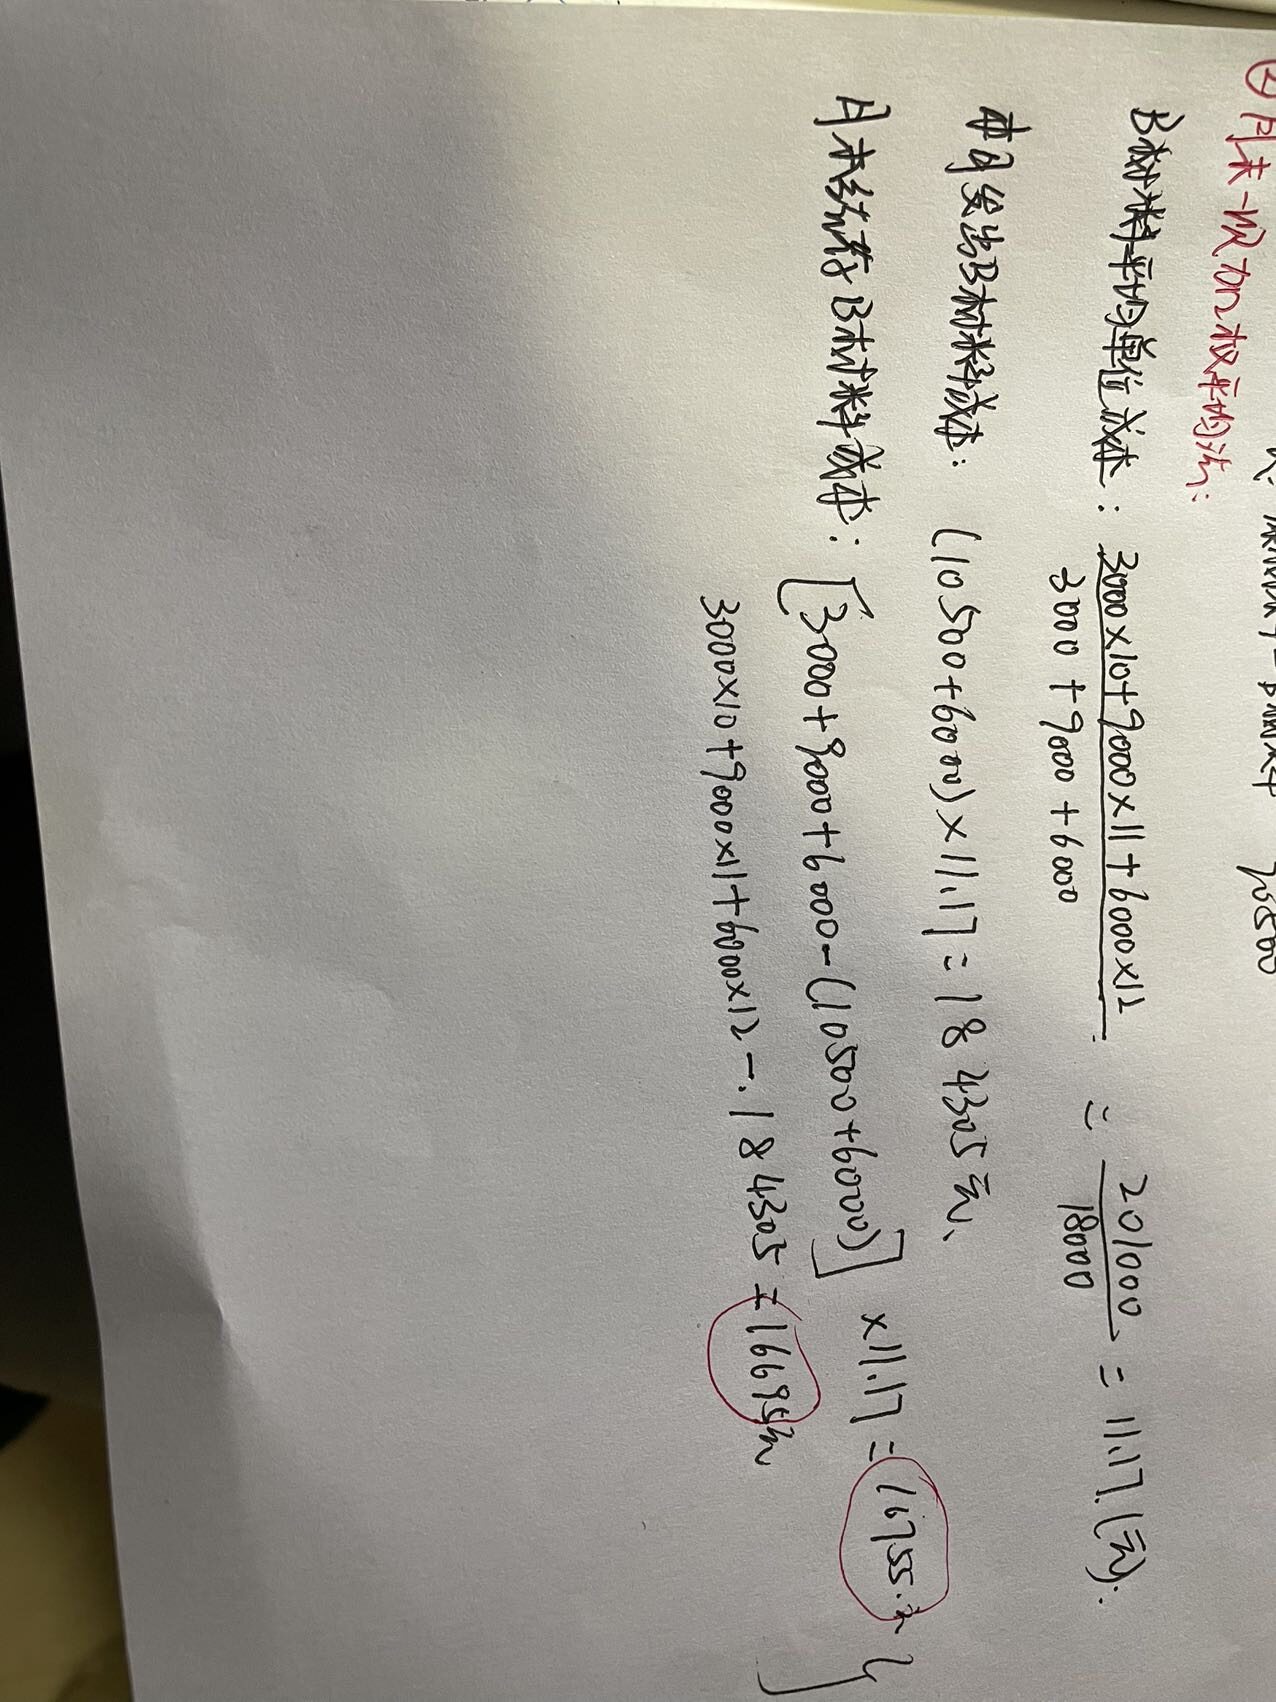 20500
②月末一次加权平均法：
B材料平均单位成本：3000×10+9000×11+6000×12 / 3000+9000+6000 = 201000 / 18000 = 11.17（元）.
本月发出B材料成本：（10500+6000）×11.17=184305元、
月末结存B材料成本：[3000+9000+6000-(10500+6000)] ×11.17=16755.元
3000×10+9000×11+6000×12-.184305=16695元